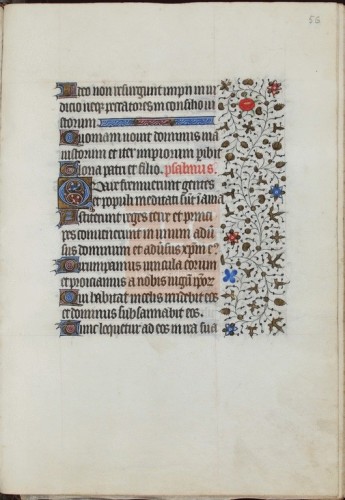 56
Ideo non resurgunt impii in iu
dicio neqz peccatores in consilio iu
storum
Quoniam nouit dominus uia
m iustorum et iter impiorum peribit
Gloria patri et filio. psalmus.
Quare fremuerunt gentes
et populi meditati sunt inania
Astiterunt reges terre et princi
pes conuenerunt in unum aduer
sus dominum et aduersus xpm ei9
Dirumpamus uincula eorum
et proiciamus a nobis iugum ipor
Qui habitat in celis irridebit eos
et dominus subsannabit eos.
Tunc loquetur ad eos in ira sua